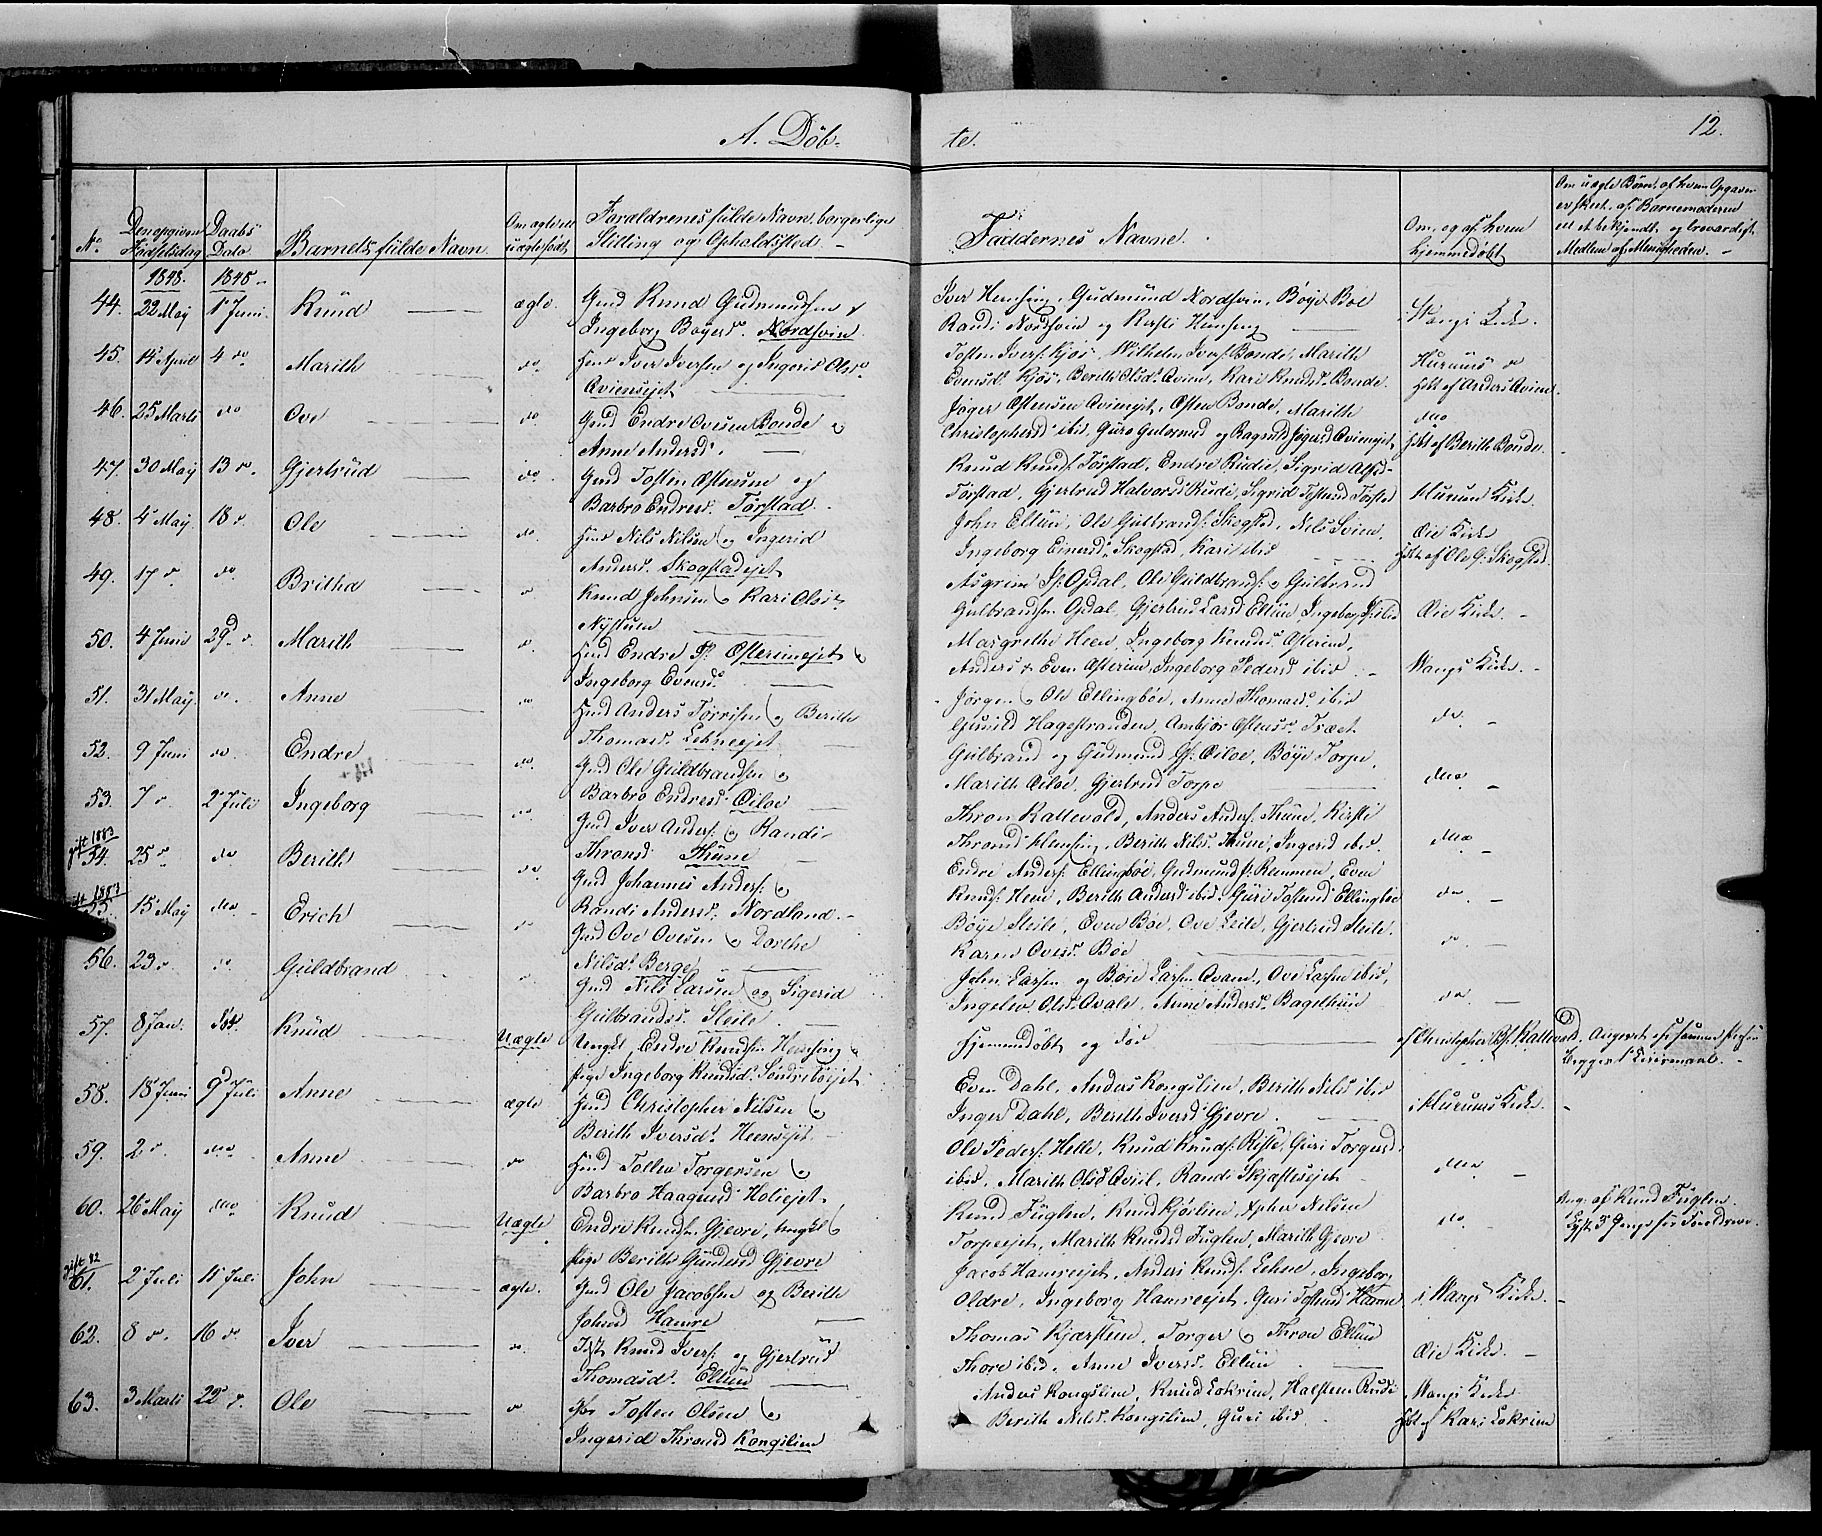 A. Døb-
te.
12.
No
Den opgivne Fødselsdag
Daabs Dato
Barnets fulde Navn.
Om ægte ell uægte født
Forældrenes fulde Navn borgerlige Stilling og Opholdssted. –
Faddernes Navne.
Om, og af hvem hjemmedøbt
Om uægte Børn, af hvem Opgaven er skeet. af Barnemoderen ell et bekjendt og troværdigt Medlem af Menigheden. –
1848. 1848 –
44. 22 May 1 Juni. Knud ægte. Gmd Knud Gudmundsen &
Ingeborg Boyesd. Nordsvin
Iver Hemsing, Gudmund Nordsvin, Böye Boe
Randi Nordsvin og Kirsti Hemsing
Wangs Kirke.
45. 14 April 4 do Marith do. Hmd Iver Iversen og Ingerid Olsd.
Qviensejet
Tosten Ivers: Kjös, Wilhelm Ivers: Bonde, Marith
Evensd. Kjös, Berith Olsd. Qvien, Kari Knudsd. Bonde.
Hurums do
Hdt af Anders Qvien.
46. 25 Marts do Ove do. Gmd Endre Ovesen Bonde &
Anne Andersd.
Jöger Östensen Qviensejet, Östen Bonde, Marith
Christophersd ibid, Guro og Ragnild Jögersd Qviensejet
do
Hdt af Berith Bonde.
47. 30 May 13 do. Gjertrud do. Gmd Tosten Östensen og
Barbro Endresd. Törstad.
Knud Knuds: Törstad, Endre Rudie, Sigrid
Törstad, Gjertrud Halvorsd Rudi, Sigrid Tostensd Törstad
Hurum Kirke.
48. 4 May. 18 d. Ole do. Hmd Nils Nilsen og Ingerid
Andersd. Skogstadejet
John Eltun, Ole Gulbrands: Skogstad, Nils Svien,
Ingeborg Einersd. Skogstad, Kari ibid
Öie Kirke
Hdt af Ole G: Skogstad.
49. 17 d. do. Britha d Knud Johnsen & Kari Olsd.
Nystuen
Asgrim S: Opdal, Ole Guldbrands: & Gulbrand
Gulbrandsen Opdal, Gjertrud Larsd Eltun, Ingeborg ibid
Öie Kirke. –
50. 4 Juni 29 d Marith d. Hmd Endre P: Östereimejet &
Ingeborg Evensd.
Margrethe Heen, Ingeborg Knudsd. Östreim,
Anders & Even Östreim, Ingeborg Pedersd ibid.
Wangs Kirke. –
51. 31 May. do. Anne do Hmd Anders Torrisen & Berith
Thomasd. Lehneejet
Jörgen & Ole Ellingböe, Anne Thomasd. ibid
Gunild Hagestranden, Ambjör Östensd. Træet
do. –
52. 9 Juni do. Endre do. Gmd Ole Guldbrandsen &
Barbro Endresd. Öiloe
Gulbrand og Gudmund G: Öiloe, Böye Torpe,
Marith Öiloe, Gjertrud Torpe
do. –
53. 7 d. 2 Juli Ingeborg do. Gmd Iver Anders: & Randi
Thronsd. Thune
Thron Kattevold, Anders Anders: Thune, Kirsti
Thronsd Hemsing, Berith Nilsd. Thune, Ingerid ibid.
do. –
gift 1883
54. 25 d do Berith do. Gmd Johannes Anders: &
Randi Andersd. Nordland. –
Endre Anders: Ellingböe, Gudmund Kummen, Even
Knuds: Heen, Berith Andersd ibid. Guri Tostensd Ellingböe
do. –
gift 1883
55. 15 May do Erich d. Gmd Ove Ovesen & Dorthe
Nilsd. Berge
Böye Steile, Even Böe, Ove Leile, Gjertrud Steile,
Karen Ovesd. Böe
do. –
56. 23 d. do. Guldbrand d Gmd Nils Larsen og Sigerid
Gulbrandsd. Steile.
John Larsen og Böie Larsen Qvam, Ove Larsen ibid,
Ingeleiv Olsd. Qvale, Anne Andersd. Bagethun
do. –
57. 8 Jan. Knud Uægte Ungkl Endre Knudsen Hemsing &
Pige Ingeborg Knudsd. Söndreböejet
Hjemmedöbt og död
af Christopher Kattevold. Angivet af samme Person
Begges 1 Leiermaal. –
58. 18 Juni 9 Juli Anne ægte Hmd Christopher Nilsen &
Berith Iversd. Heensejet
Even Dahl, Anders Kongslien, Berith Nilsd ibid
Inger Dahl, Berith Iversd Gjevre.
i Hurums Kirke. –
59. 2 d. do Anne do Hmd Tollen Torgersen &
Barbro Haagensd Holiejet
Ole Peders: Helle, Knud Knuds: Riste, Guri Torgersd.
ibid, Marith Olsd Qviel, Randi Skjaftesejet
do –
60. 26 May do Knud Uægte Endre Knudsen Gjevre, Ungkl &
Pige Berith Gundersd Gjevre
Knud Fuglen, Knud Kjörlien, Nilsen
Torpeejet, Marith Knudsd Fuglen, Marith Gjevre
do. –
Ang: af Knud Fuglen.
Gang for Forældrene.
gift 82
61. 2 Juli 11 Juli John ægte. Gmd Ole Jacobsen og Berith
Johnsd Hamre
Jacob Hamreejet, Anders Knuds: Lehne, Ingeborg
Oldre, Ingeborg Hamreejet, Guri Tostensd Hamre
i Wangs Kirke. –
62. 8 d. 16 do Iver do. Knud Ivers: og Gjertrud
Thomasd. Eltun
Thomas Kjærstein, Torger & Thron Eltun
Thore ibid. Anne Iversd. Eltun
Öie Kirke. –
63. 3 Marts 22 d. Ole d Tosten Olsen &
Ingerid Thronsd Kongslien
Anders Kongslien, Knud Lokrim, Halsten Rudi
Berith Nilsd. Kongslien, Guri ibid.
Wangs Kirke
Hdt af Kari Lokrim